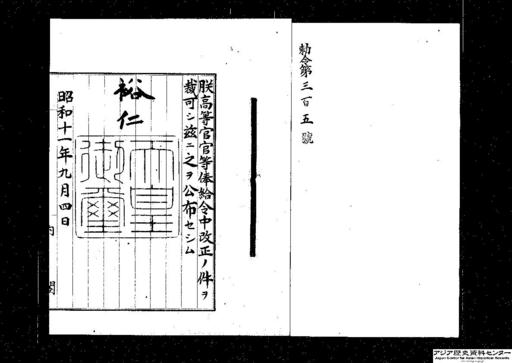 勅令第三百五號
朕高等官官等俸給令中改正ノ件ヲ
裁可シ茲ニ之ヲ公布セシム
裕仁
天皇
御璽
昭和十一年九月四日
内閣
アジア歴史資料センター
Japan Center for Asian Historical Records